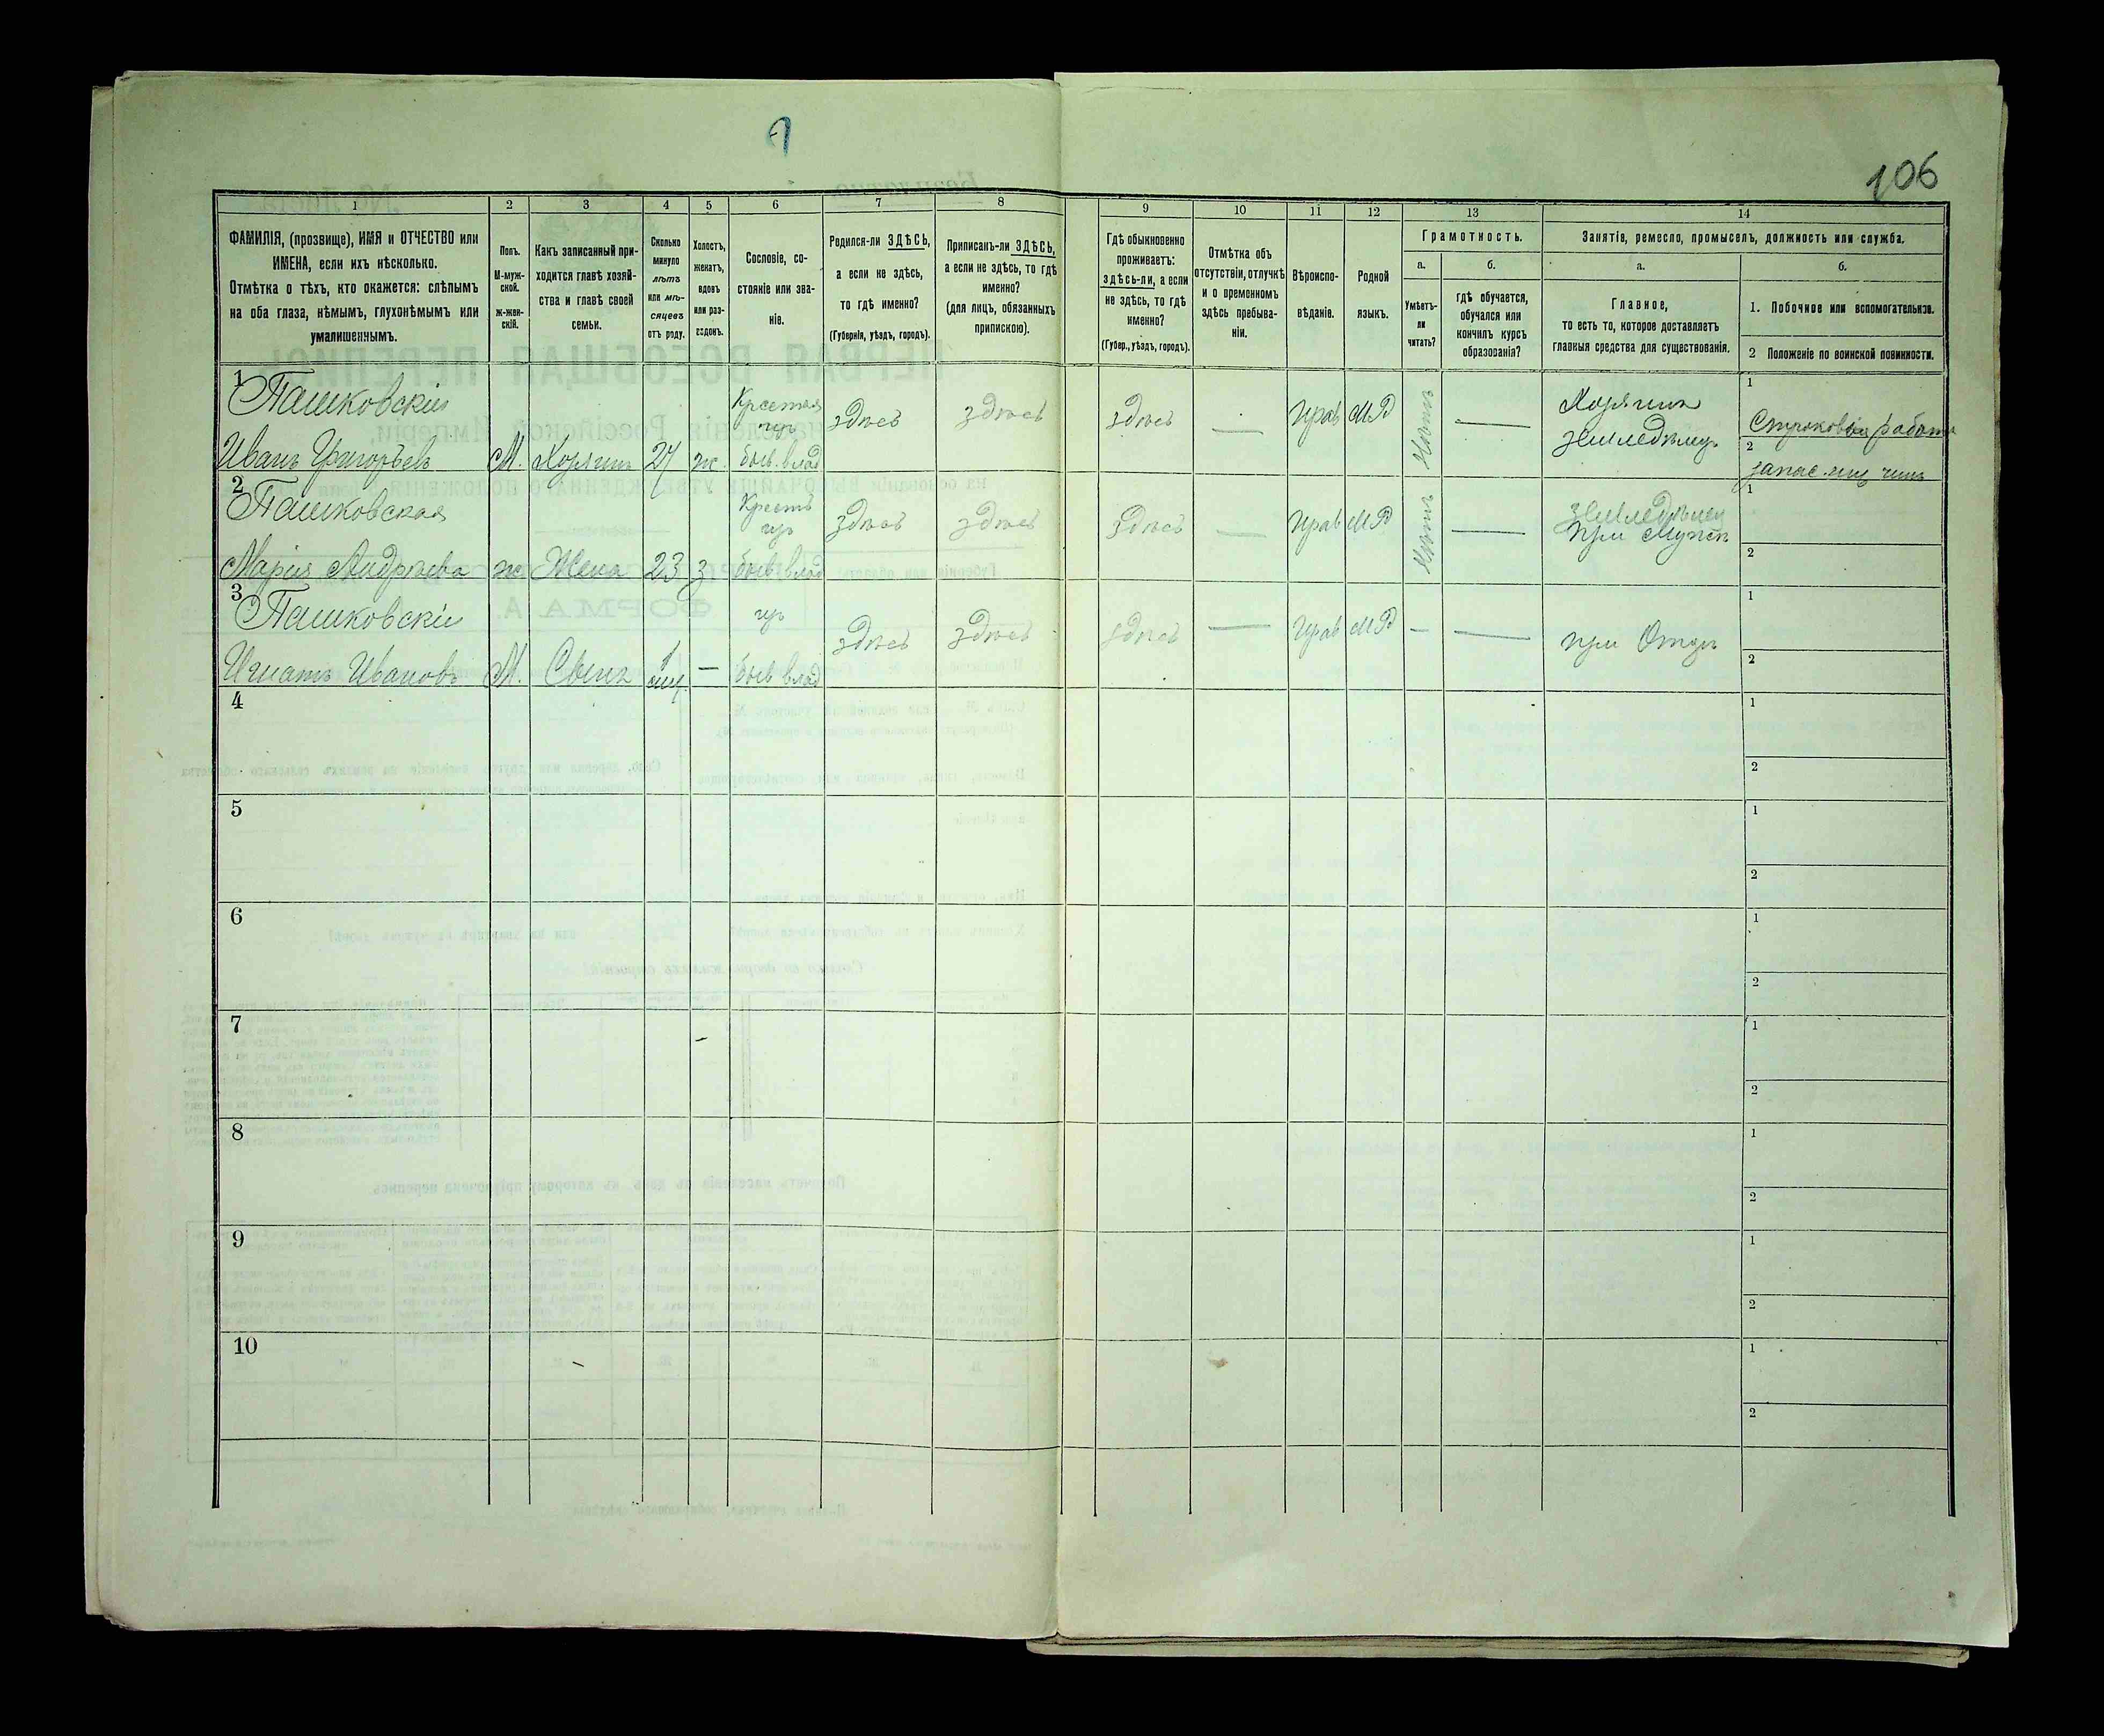 9
106
1
2
3
4
5
6
7
8
9
10
11
12
13
14
ФАМИЛІЯ, (прозвище), ИМЯ и ОТЧЕСТВО или
ИМЕНА, если ихъ нѣсколько.
Отмѣтка о тѣхъ, кто окажется: слѣпымъ
на оба глаза, нѣмымъ, глухонѣмымъ или
умалишеннымъ.
Полъ.
М-муж-
ской.
ж-жен-
скій.
Какъ записанный при-
ходится главѣ хозяй-
ства и главѣ своей
семьи.
Сколько
минуло
лѣтъ
или мѣ-
сяцевъ
отъ роду.
Холостъ,
женатъ,
вдовъ
или раз-
веденъ.
Сословіе, со-
стояніе или зва-
ніе.
Родился-ли ЗДѢСЬ,
а если не здѣсь,
то гдѣ именно?
(Губернія, уѣздъ, городъ).
Приписанъ-ли ЗДѢСЬ,
а если не здѣсь, то гдѣ
именно?
(для лицъ, обязанныхъ
припискою).
Гдѣ обыкновенно
проживаетъ:
здѣсь-ли, а если
не здѣсь, то гдѣ
именно?
(Губер., уѣздъ, городъ).
Отмѣтка объ
отсутствіи, отлучкѣ
и о временномъ
здѣсь пребыва-
ніи.
Вѣроиспо-
вѣданіе.
Родной
языкъ.
Грамотность.
а.
Умѣетъ-
ли
читать?
б.
гдѣ обучается,
обучался или
кончилъ курсъ
образованія?
Занятіе, ремесло, промыселъ, должность или служба.
а.
Главное,
то есть то, которое доставляетъ
главныя средства для существованія.
б.
1. Побочное или вспомогательное.
2 Положеніе по воинской повинности.
1
Пашковскій
Иванъ Григорьевъ
М.
Хозяинъ
27
ж.
быв. влад
здѣсь
здѣсь
здѣсь
—
Прав
МР
Нѣтъ
—
Хозяинъ
землед
1
работ
2
запас
2
Пашковская
Марія Андрѣева
ж
Жена
23
з
Крестъ
быв. влад
здѣсь
здѣсь
здѣсь
—
Прав
МР
Нѣтъ
—
при Мужѣ
1
2
3
Пашковскій
Игнатъ Ивановъ
М.
Сынъ
1
мѣ
—
быв влад
здѣсь
здѣсь
здѣсь
—
Прав
МР
—
—
при Отцѣ
1
2
4
1
2
5
1
2
6
1
2
7
1
2
8
1
2
9
1
2
10
1
2